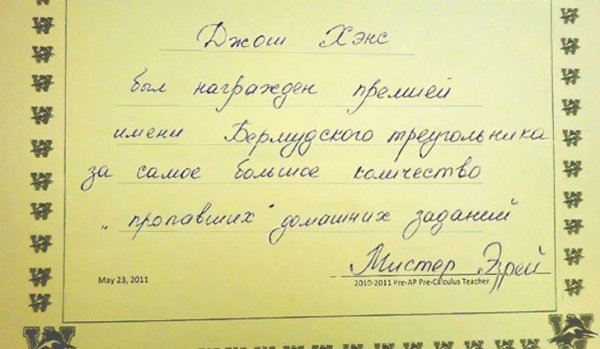 Джош Хэнс
был награжден премией
имени Бермудского треугольника
за самое большое количество
„пропавших" домашних заданий
Мистер Эзрей
May 23, 2011
2010-2011 Pre-AP Pre-Calculus Teacher